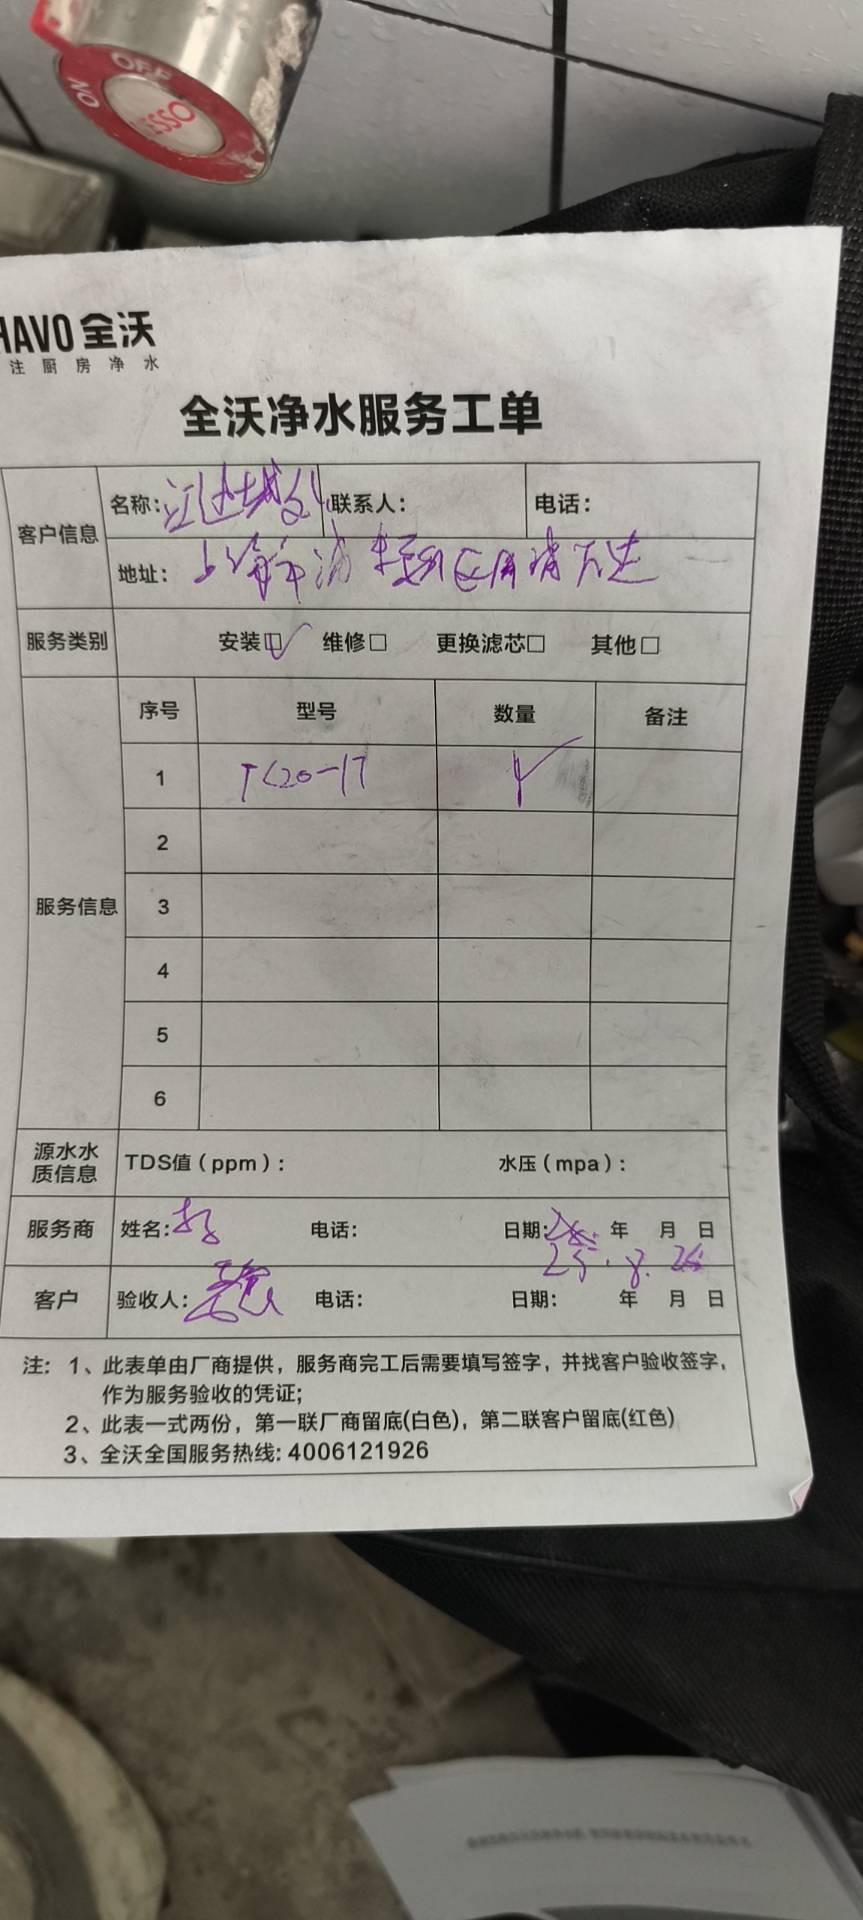 OFF
NO
ESSO
HAVO 全沃
注厨房净水
全沃净水服务工单
客户信息
名称：江边城外
联系人：
电话：
地址：上海市浦东新区
服务类别
安装☑ 维修□ 更换滤芯□ 其他□
服务信息
序号 型号 数量 备注
1 TC20-17
2
3
4
5
6
源水水质信息
TDS值（ppm）：
水压（mpa）：
服务商
姓名：
电话：
日期： 年 月 日
25.8.26
客户
验收人：
电话：
日期： 年 月 日
注：1、此表单由厂商提供，服务商完工后需要填写签字，并找客户验收签字，
作为服务验收的凭证；
2、此表一式两份，第一联厂商留底(白色)，第二联客户留底(红色)
3、全沃全国服务热线: 4006121926